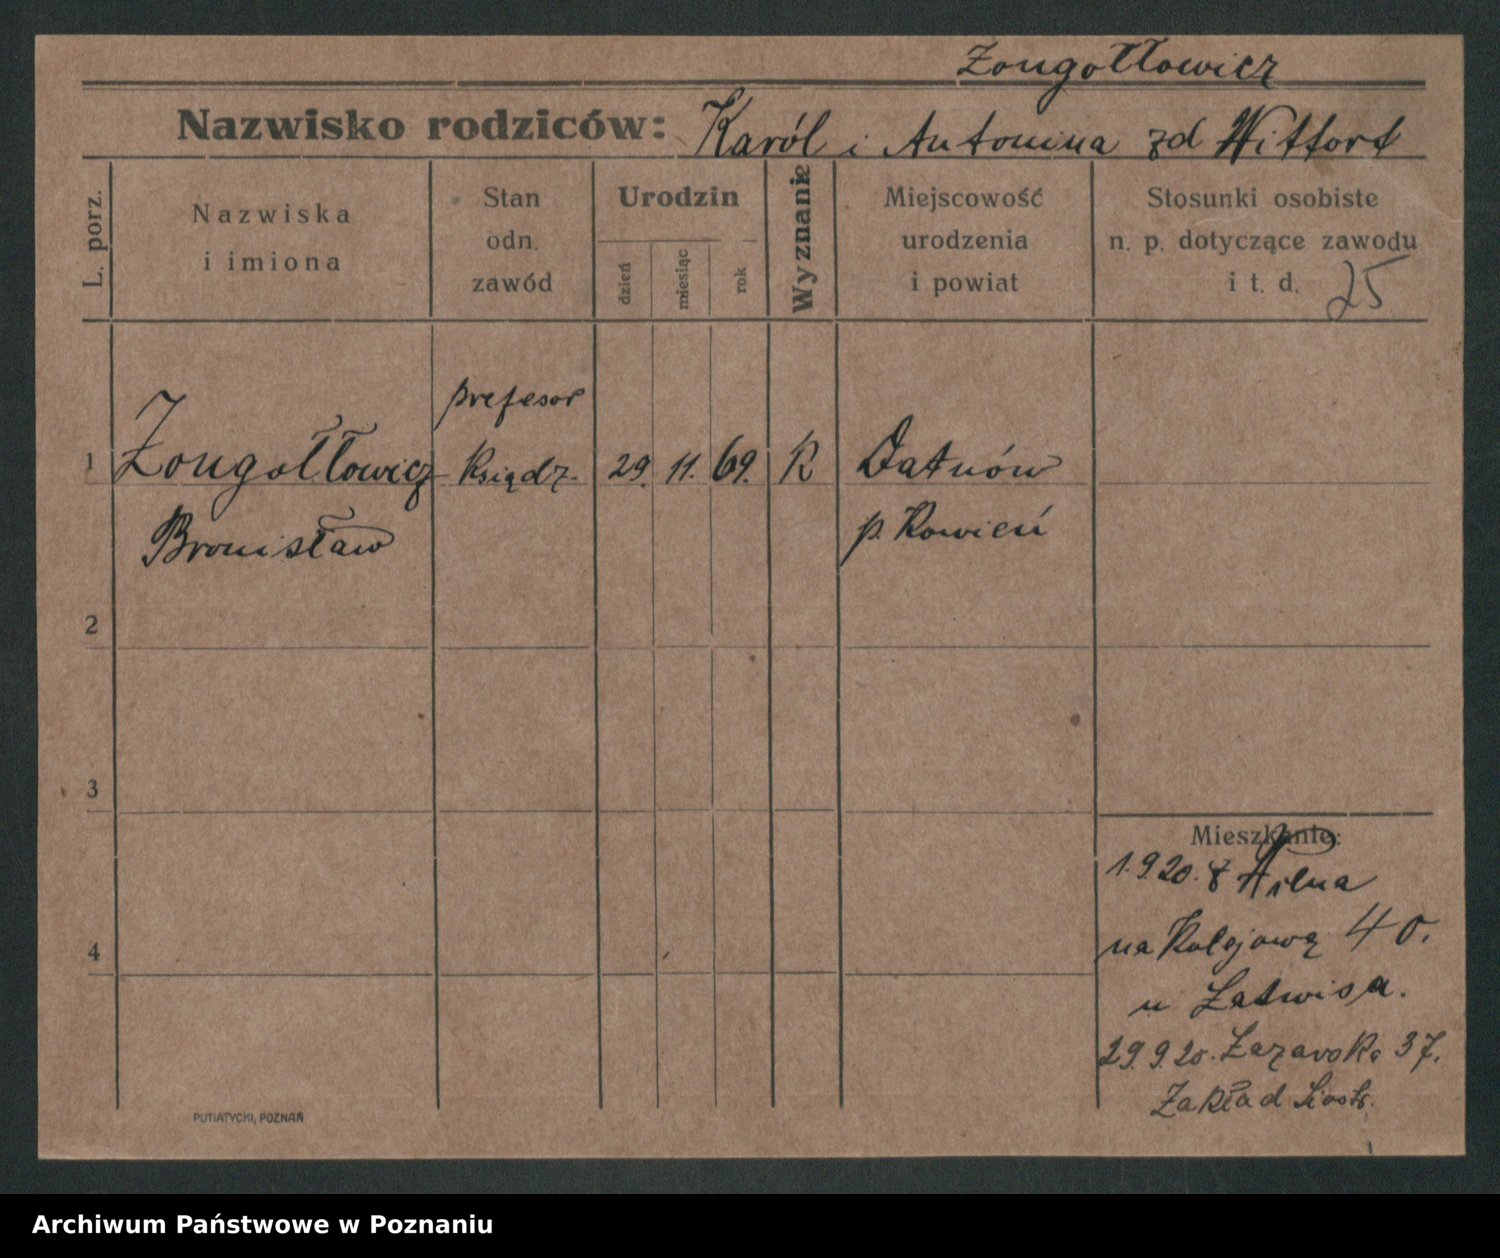 Żongołłowicz
Nazwisko rodziców: Karól i Antonina zd Wittort
L. porz.
Nazwiska
i imiona
Stan
odn.
zawód
Urodzin
dzień
miesiąc
rok
Wyznanie
Miejscowość
urodzenia
i powiat
Stosunki osobiste
n. p. dotyczące zawodu
i t. d. 25
profesor
1 Żongołłowicz Ksiądz. 29. 11. 69. R Datnów
Bronisław p. Kowień
2
3
4
Mieszkanie:
1.9.20. z Wilna
na Kolejową 40.
u Łatwisa.
29.9.20. Łazarska 37.
Zakład Siostr.
PUTIATYCKI, POZNAŃ
Archiwum Państwowe w Poznaniu